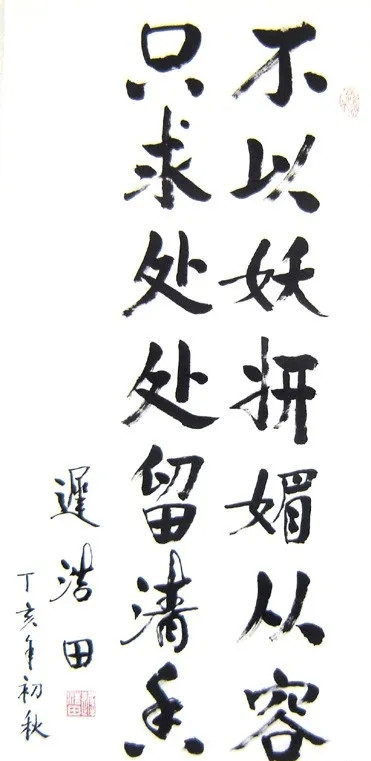 不以妖妍媚从容
只求处处留清香
遲浩田
丁亥年初秋